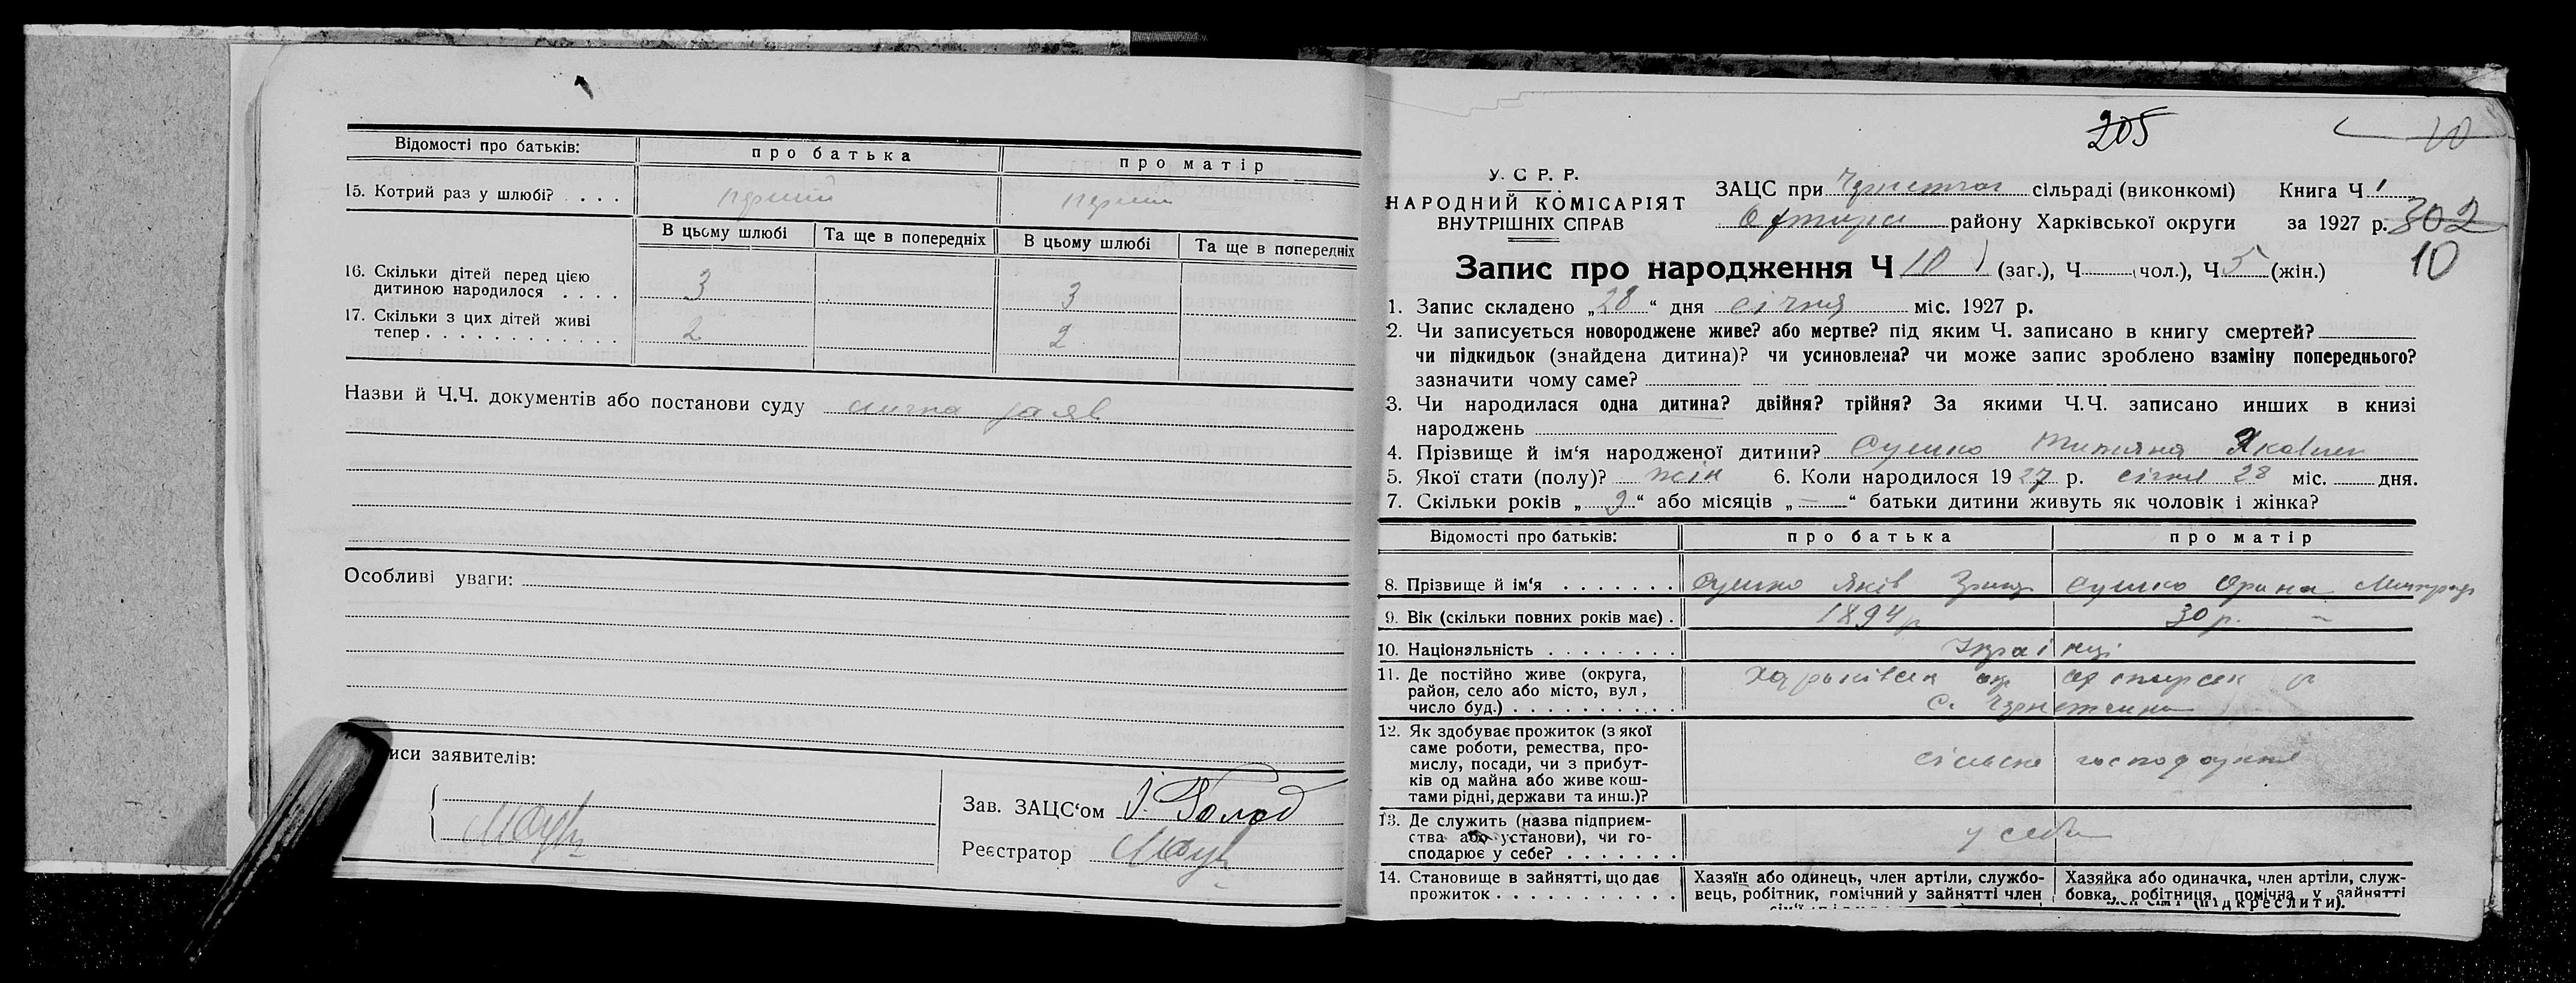 Відомості про батьків: про батька про матір
15. Котрий раз у шлюбі? . . . . перший перший
В цьому шлюбі Та ще в попередніх В цьому шлюбі Та ще в попередніх
16. Скільки дітей перед цією
дитиною народилося . . . . 3 3
17. Скільки з цих дітей живі
тепер . . . . . . . . . . . . . 2 2
Назви й Ч.Ч. документів або постанови суду лична заяв
Особливі уваги:
иси заявителів:
Зав. ЗАЦС‘ом
Реєстратор
205
10
У. С Р. Р.
НАРОДНИЙ КОМІСАРІЯТ
ВНУТРІШНІХ СПРАВ
ЗАЦС при сільраді (виконкомі) Книга Ч 1
району Харківської округи за 1927 р.
302
10
Запис про народження Ч 10 (заг.), Ч (чол.), Ч 5 (жін.)
1. Запис складено „28“ дня січня міс. 1927 р.
2. Чи записується новороджене живе? або мертве? під яким Ч. записано в книгу смертей?
чи підкидьок (знайдена дитина)? чи усиновлена? чи може запис зроблено взаміну попереднього?
зазначити чому саме?
3. Чи народилася одна дитина? двійня? трійня? За якими Ч.Ч. записано инших в книзі
народжень
4. Прізвище й ім‘я народженої дитини? Сушко Титяна Яковлев
5. Якої стати (полу)? жін 6. Коли народилося 1927 р. січня 28 міс. дня.
7. Скільки років „9“ або місяців „—“ батьки дитини живуть як чоловік і жінка?
Відомості про батьків: про батька про матір
8. Прізвище й ім‘я . . . . . . . Сушко Яків Сушко Орина
9. Вік (скільки повних років має) . 1894 р 30 р. —
10. Національність . . . . . . . . Украінці
11. Де постійно живе (округа,
район, село або місто, вул,
число буд.) . . . . . . . . . . Харьківськ окр р
с.
12. Як здобуває прожиток (з якої
саме роботи, ремества, про-
мислу, посади, чи з прибут-
ків од майна або живе кош-
тами рідні, держави та инш.)? сільське господарство
13. Де служить (назва підприєм-
ства або установи), чи го-
сподарює у себе? . . . . . . . у себе
14. Становище в зайнятті, що дає
прожиток . . . . . . . . . . . .
Хазяїн або одинець, член артіли, службо-
вець, робітник, помічний у зайнятті член
Хазяйка або одиначка, член артіли, служ-
бовка, робітниця, помічна у зайнятті
(підкреслити).